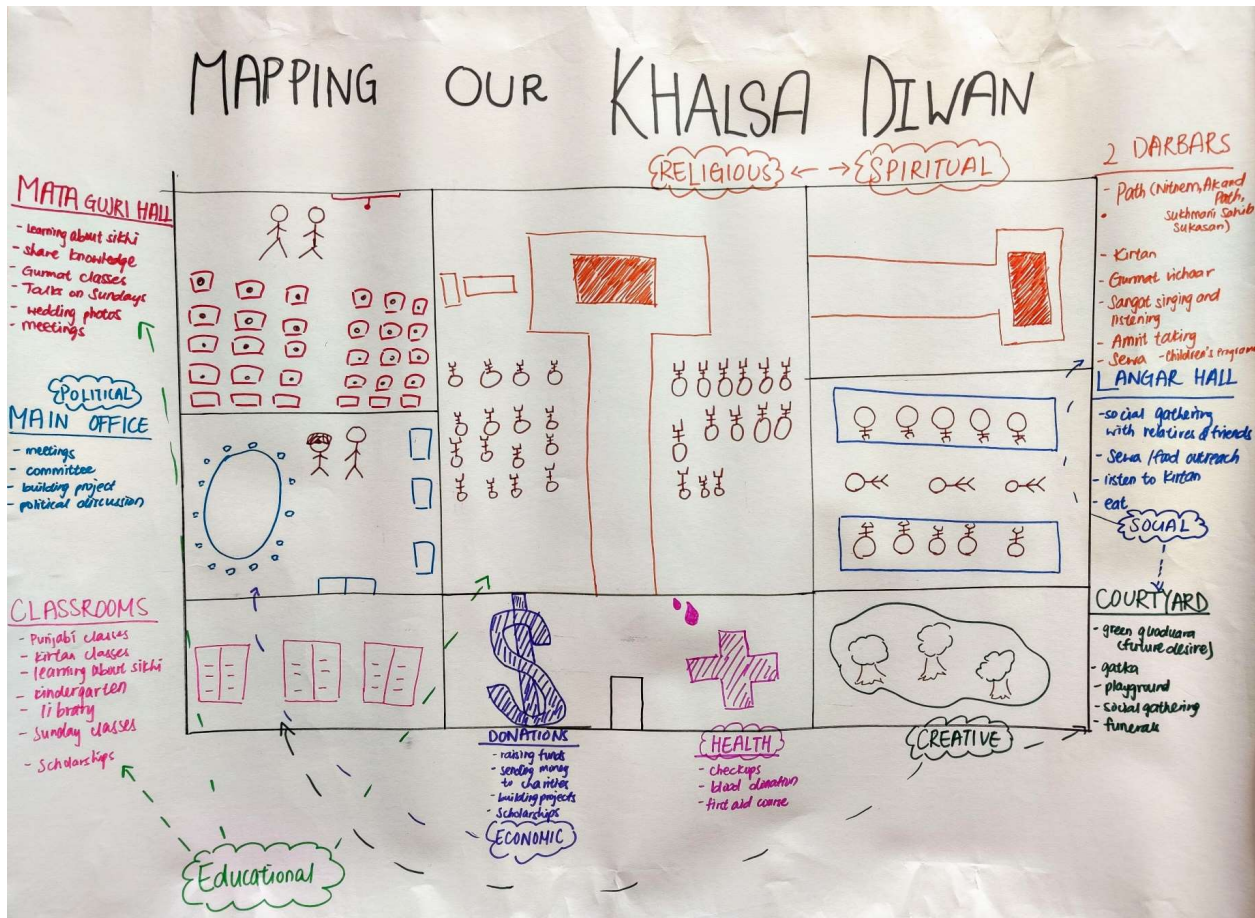 MAPPING OUR KHALSA DIWAN
RELIGIOUS
SPIRITUAL
MATA GUJRI HALL
- learning about sikhi
- share knowledge
- Gurmat classes
- Talks on Sundays
- wedding photos
- meetings
POLITICAL
MAIN OFFICE
- meetings
- committee
- building project
- political discussion
CLASSROOMS
- Punjabi classes
- Kirtan classes
- learning about sikhi
- kindergarten
- library
- Sunday classes
- Scholarships
Educational
DONATIONS
- raising funds
- sending money
to charities
- building projects
- Scholarships
ECONOMIC
HEALTH
- checkups
- blood donation
- first aid course
CREATIVE
2 DARBARS
- Path (Nitnem, Akand
Path,
Sukhmani Sahib
Sukasan)
- Kirtan
- Gurmat vichaar
- Sangat singing and
listening
- Amrit taking
- Sewa - Children's Programs
LANGAR HALL
- social gathering
with relatives & friends
- Sewa / food outreach
- listen to Kirtan
- eat
SOCIAL
COURTYARD
- green
(future desire)
- gatka
- playground
- social gathering
- funerals